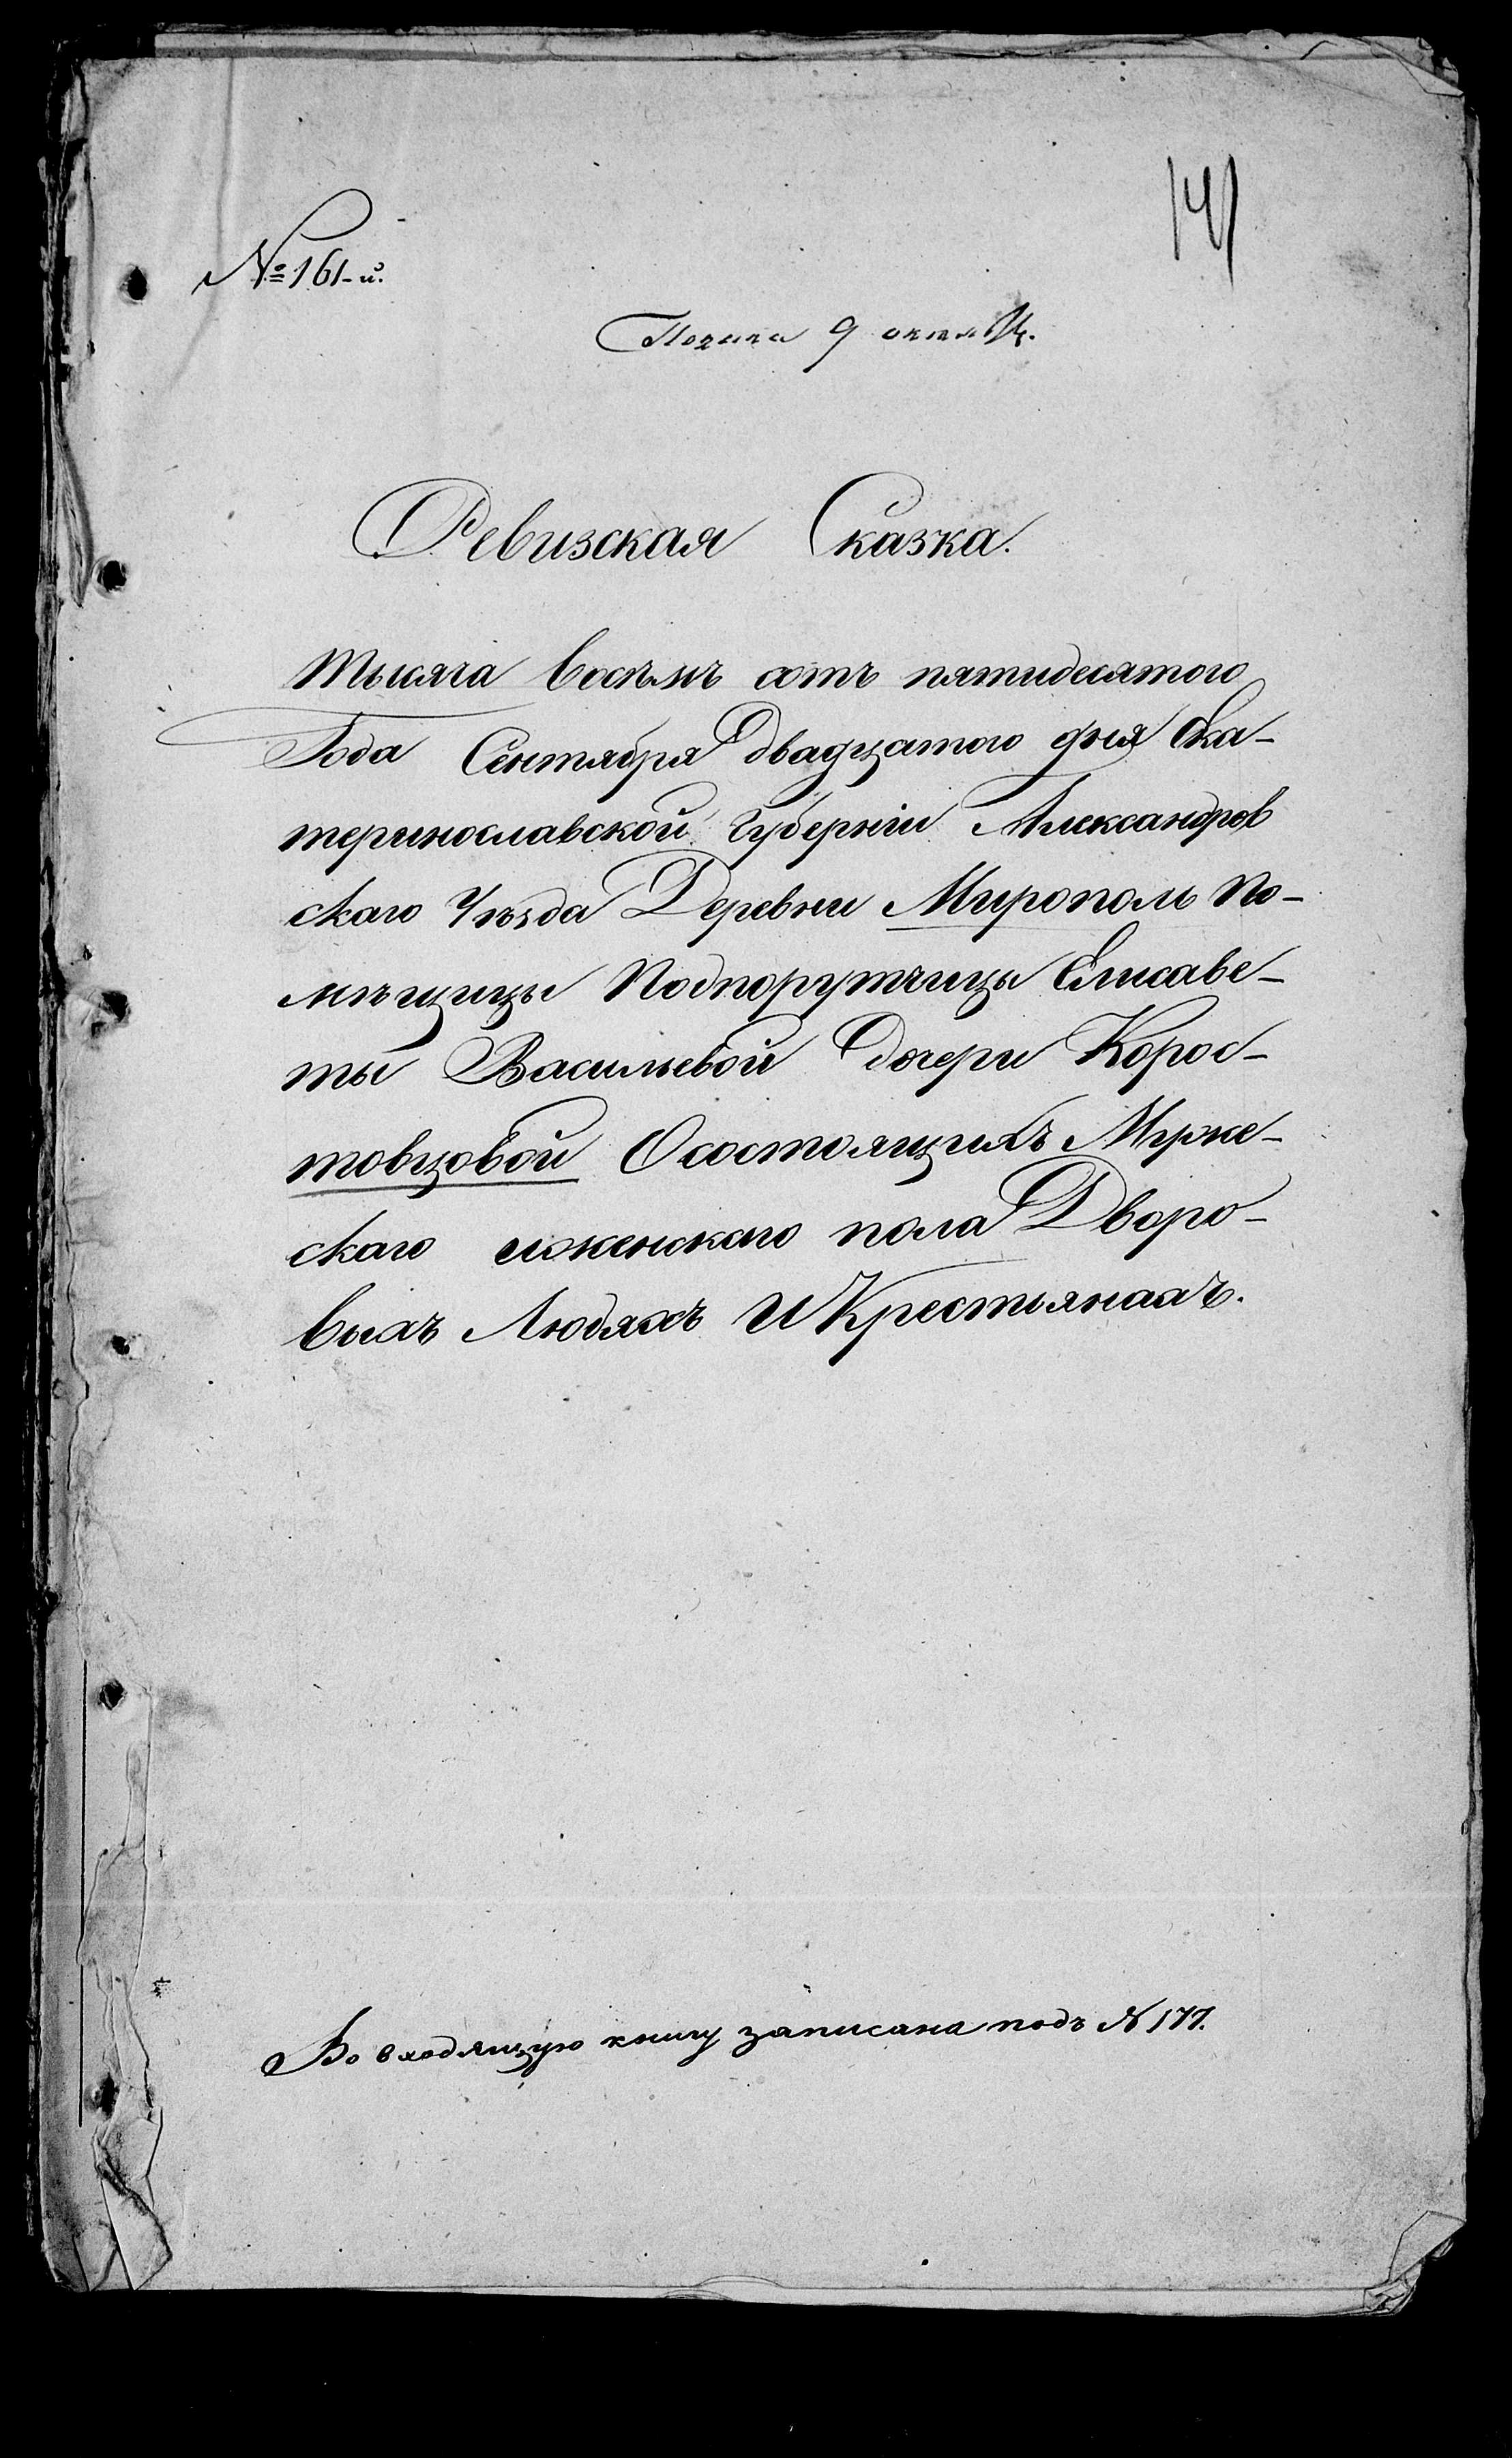 141
№ 161-й.
Подана 9 октяб.
Ревизская Сказка.
Тысяча восемь сотъ пятидесятого
Года Сентября двадцатого дня Ека-
теринославской губерніи Александров
скаго Уѣзда Деревни Мирополь По-
мѣщицы Подпорутчицы Елисаве-
ты Васильевой дочери Корос-
товцовой О состоящихъ Муже-
скаго и женскаго пола Дворо-
выхъ Людяхъ и Крестьянахъ.
Во входящую книгу записана подъ № 177.